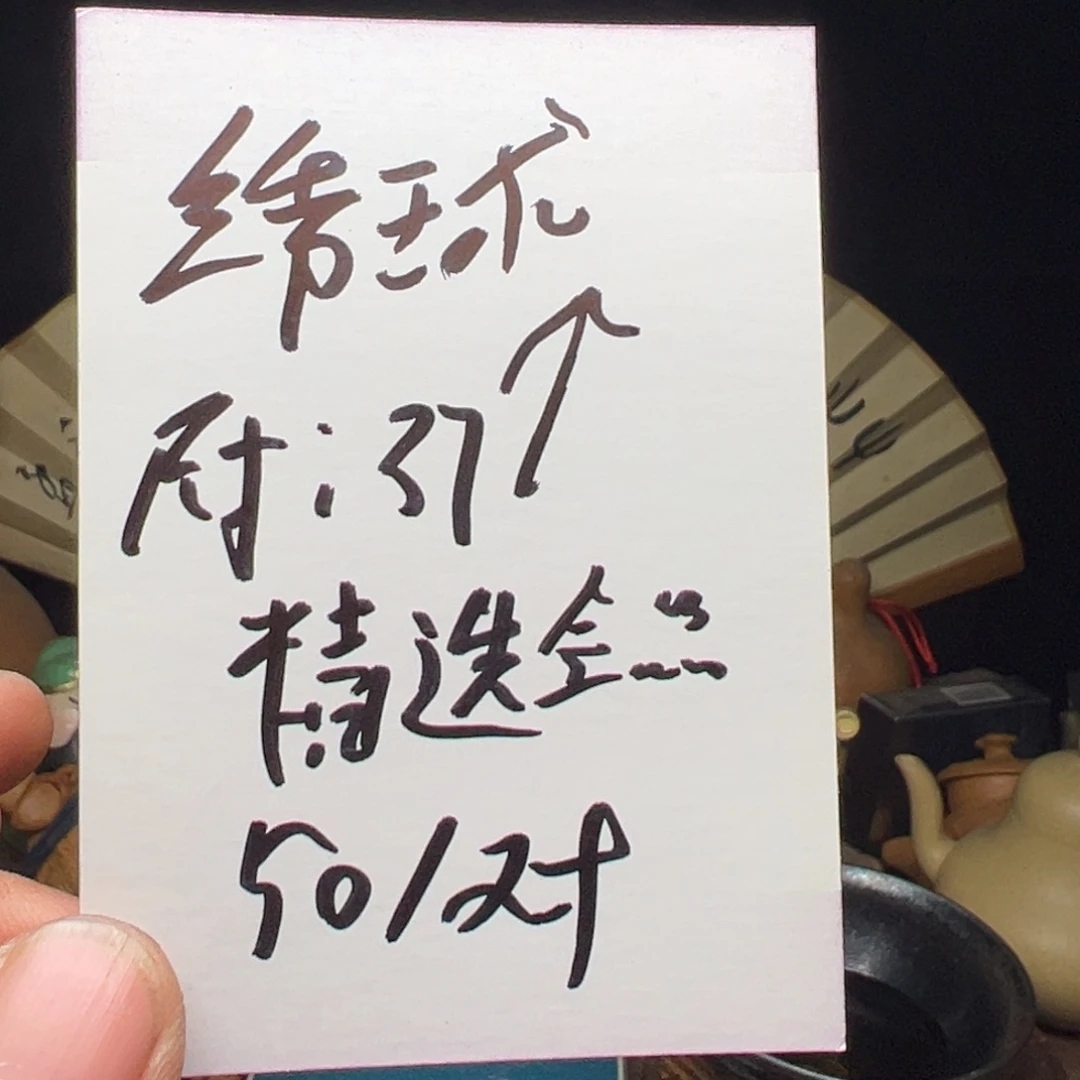 绣球
尺寸:37↑
精选全品
50/对